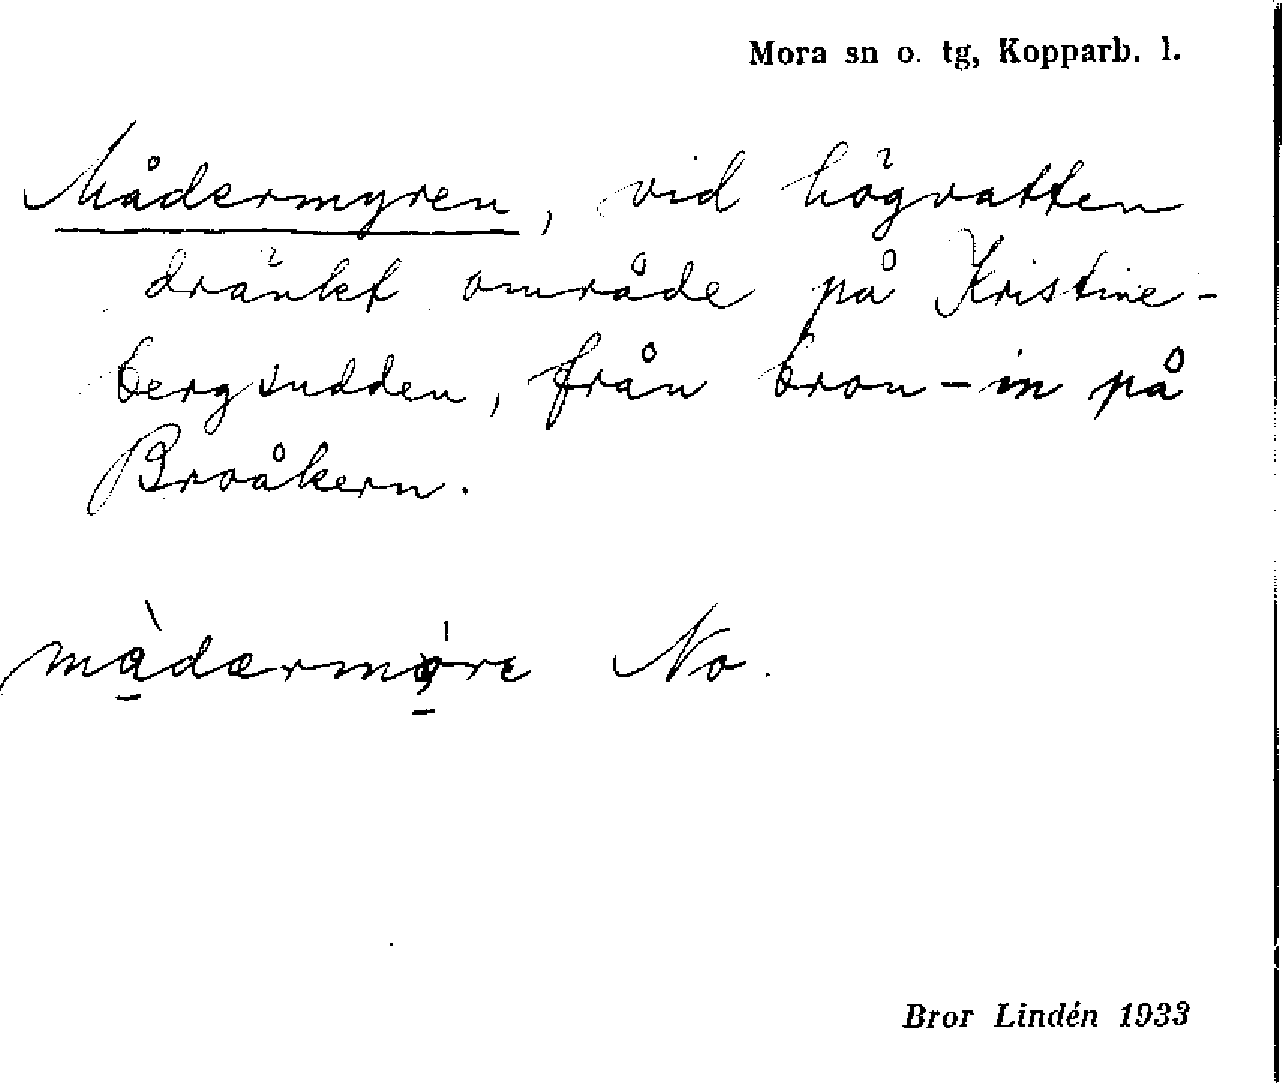 Mora sn o. tg, Kopparb. l.
Mådermyren, vid högvatten
dränkt område på Kristine-
bergsudden, från bron - in på
Broåkern.
No.
Bror Lindén 1933